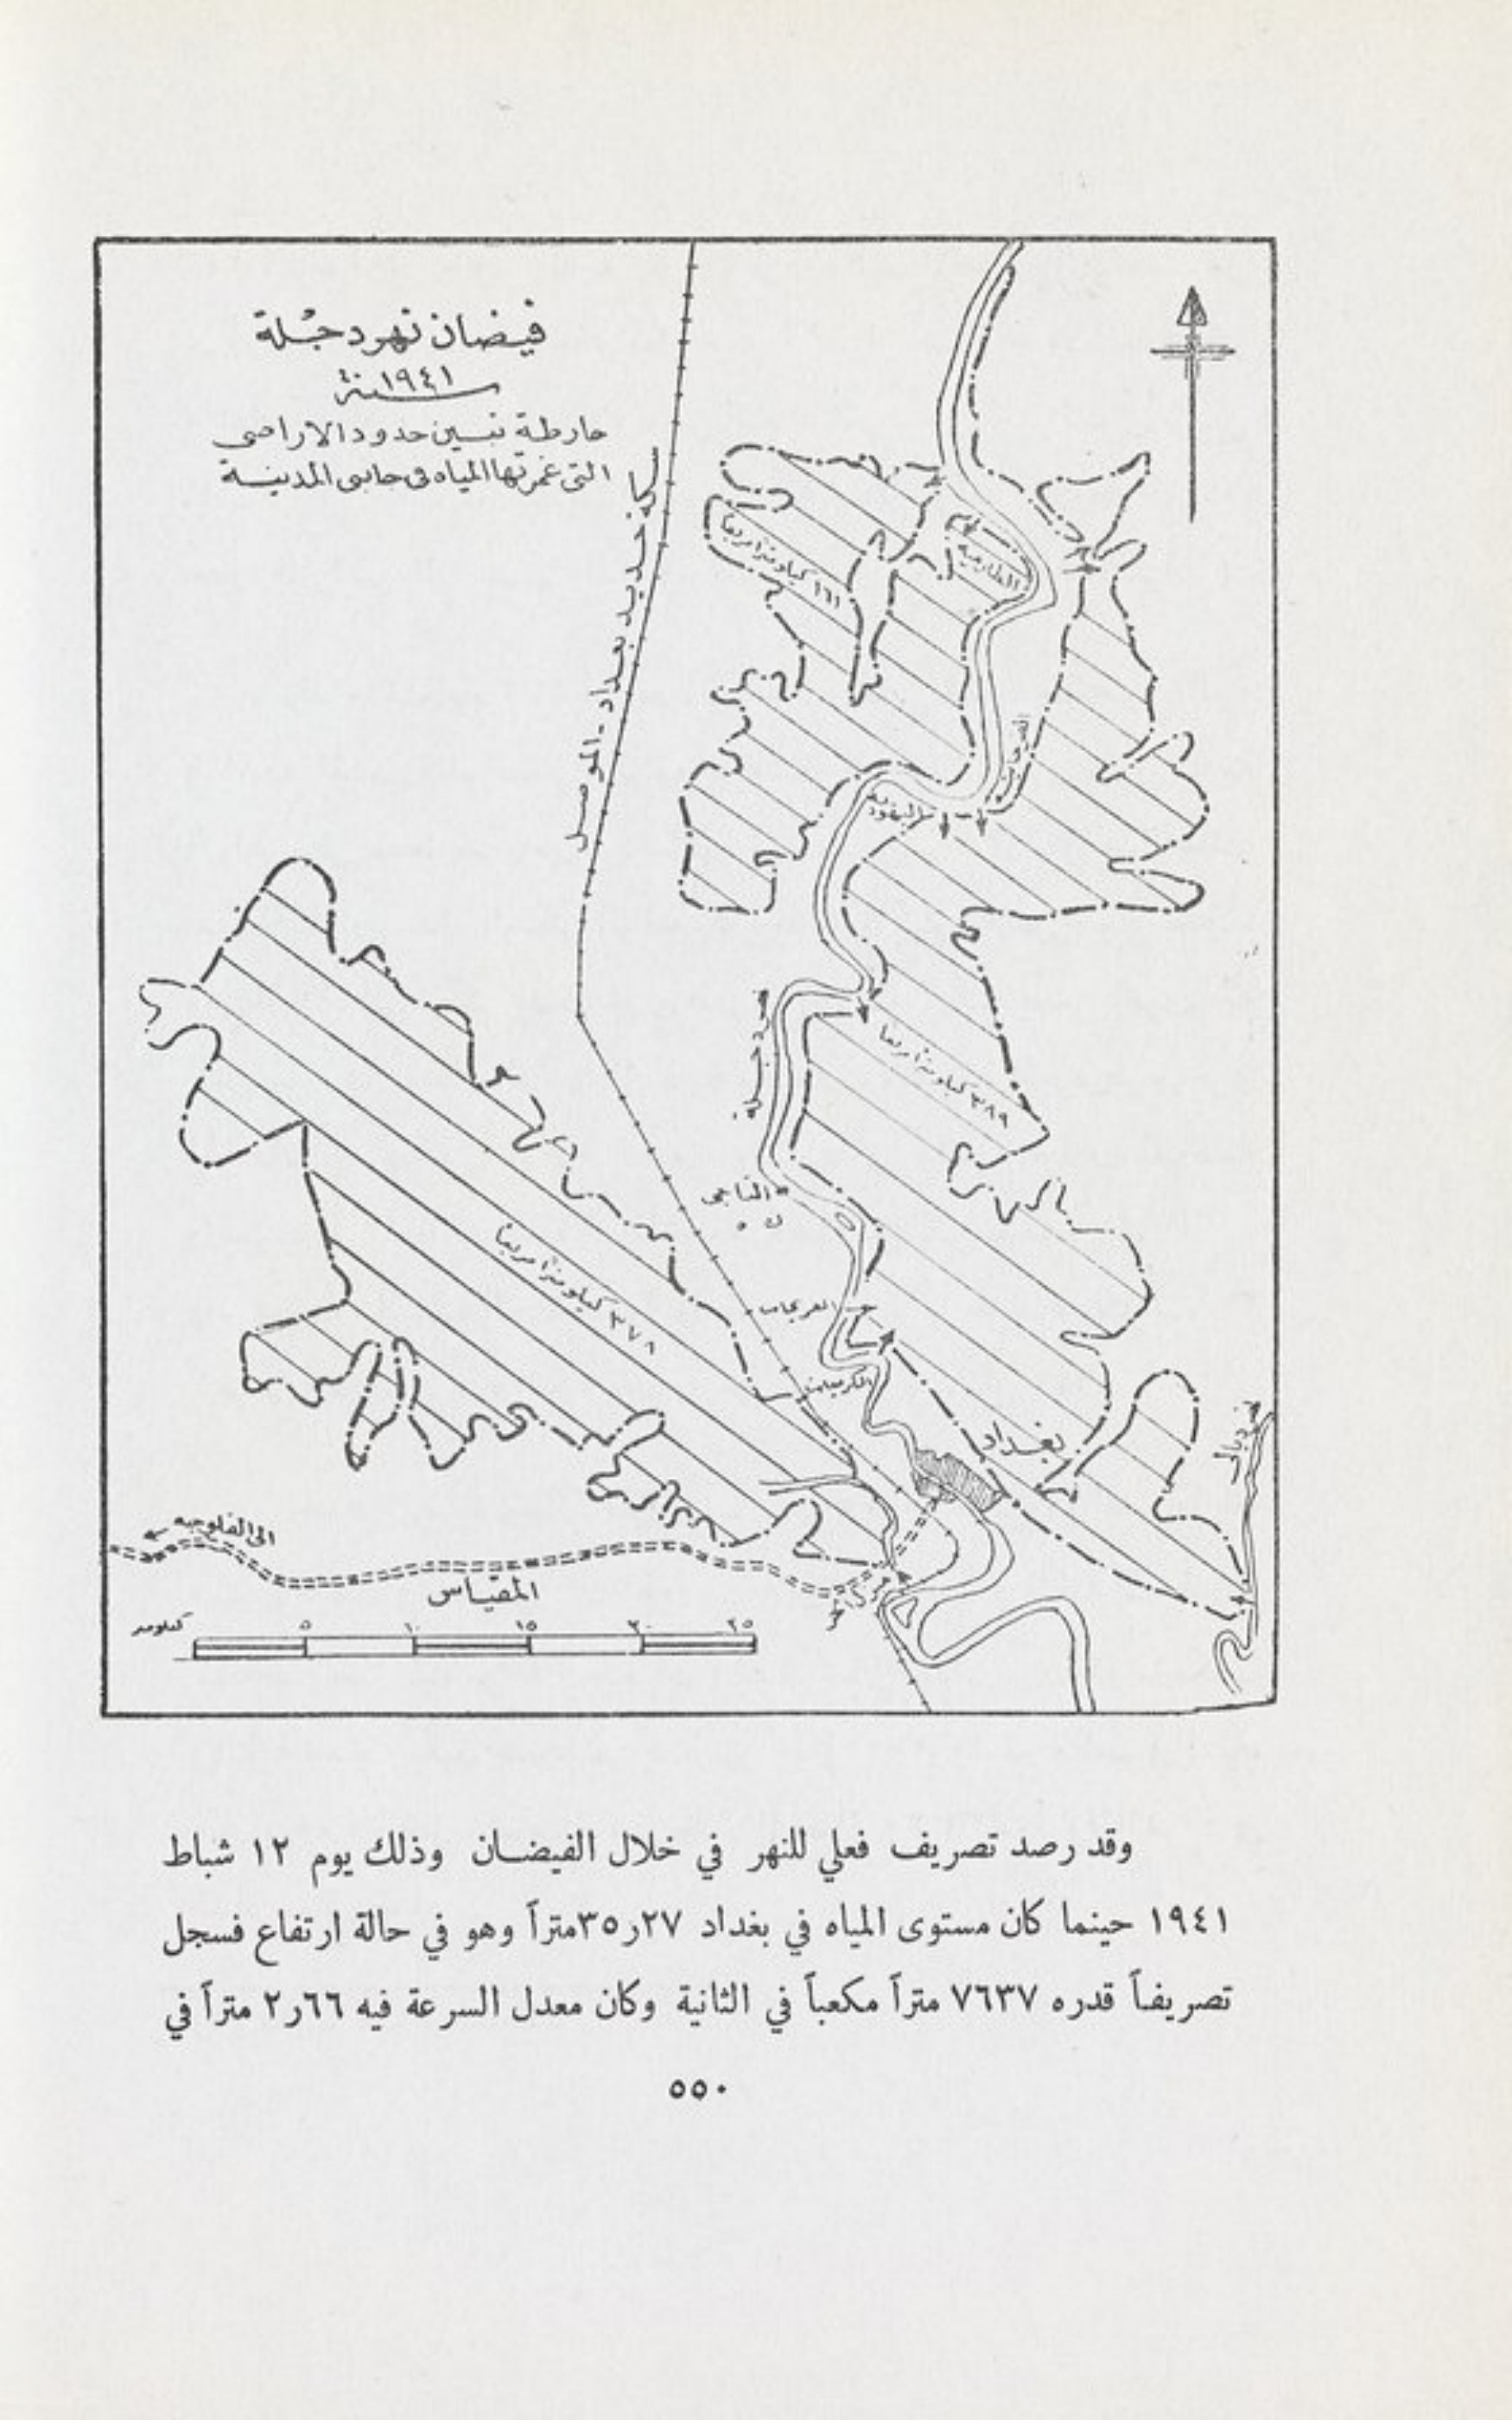 فيضان نهر دجلة
سنة ١٩٤١
خارطة تبين حدود الاراضي
التي غمرتها المياه في جانبي المدينة
سكة حديد بغداد - الموصل
١٦١ كيلومتراً مربعاً
الطارمية
اليهودية
نهر دجلة
٣٨٩ كيلومتراً مربعاً
التاجي
٣٧٨ كيلومتراً مربعاً
بغداد
نهر ديالى
الى الفلوجة
المقياس
كيلومتر
٥ ١٠ ١٥ ٢٠ ٢٥
وقد رصد تصريف فعلي للنهر في خلال الفيضان وذلك يوم ١٢ شباط
١٩٤١ حينما كان مستوى المياه في بغداد ٢٧ر٣٥ متراً وهو في حالة ارتفاع فسجل
تصريفاً قدره ٧٦٣٧ متراً مكعباً في الثانية وكان معدل السرعة فيه ٦٦ر٢ متراً في
٥٥٠